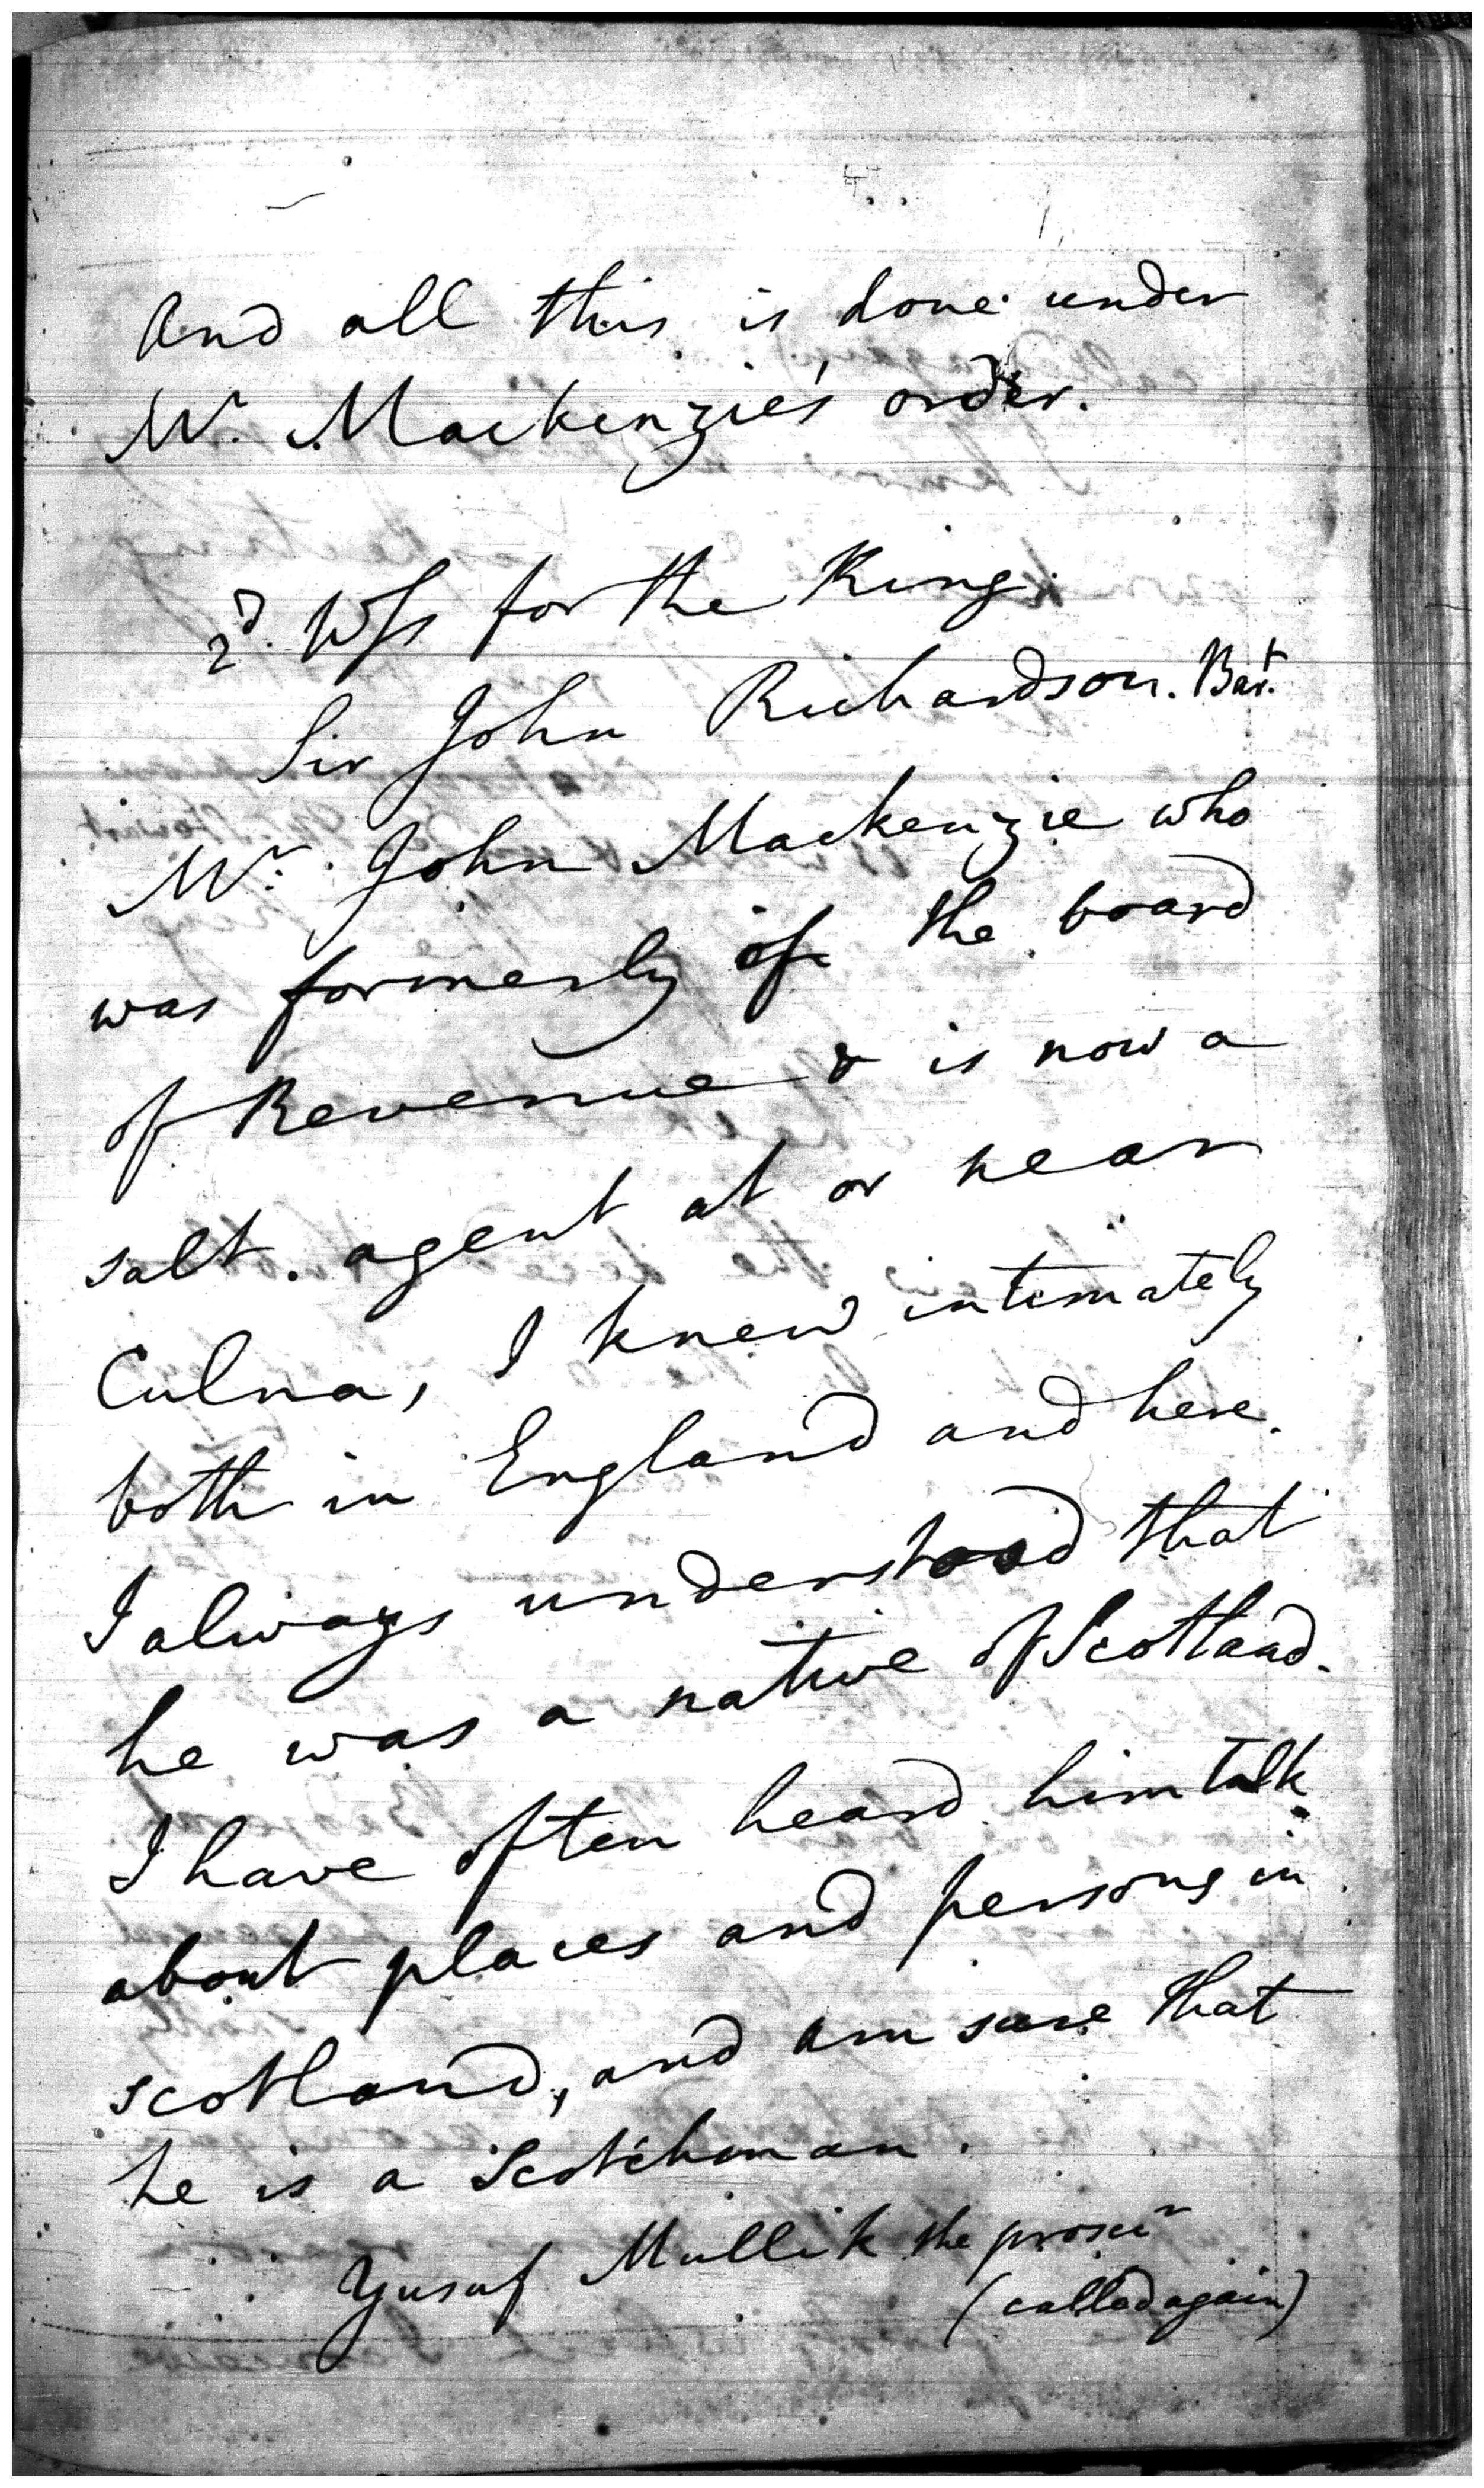 And all this is done under
Mr. Mackenzie's order.
2d. Wss for the King.
Sir John Richardson. Bart.
Mr. John Mackenzie who
was formerly of the board
of Revenue & is now a
salt. agent at or near
Culna, I knew intimately
both in England and here.
I always understood that
he was a native of Scotland.
I have often heard him talk
about places and persons in
scotland, and am sure that
he is a Scotchman.
Yusuf Mullik the prosecr
(called again)